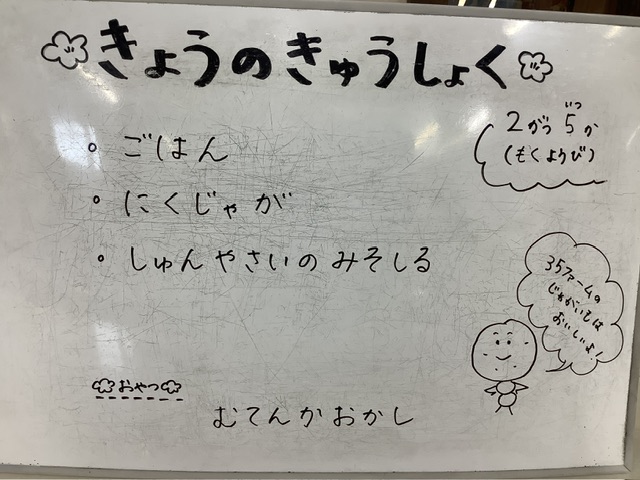 きょうのきゅうしょく
2がつ5か
いつ
(もくようび)
・ごはん
・にくじゃが
・しゅんやさいのみそしる
35ファームの
じゃがいもは
おいしいよ!
おやつ
むてんかおかし